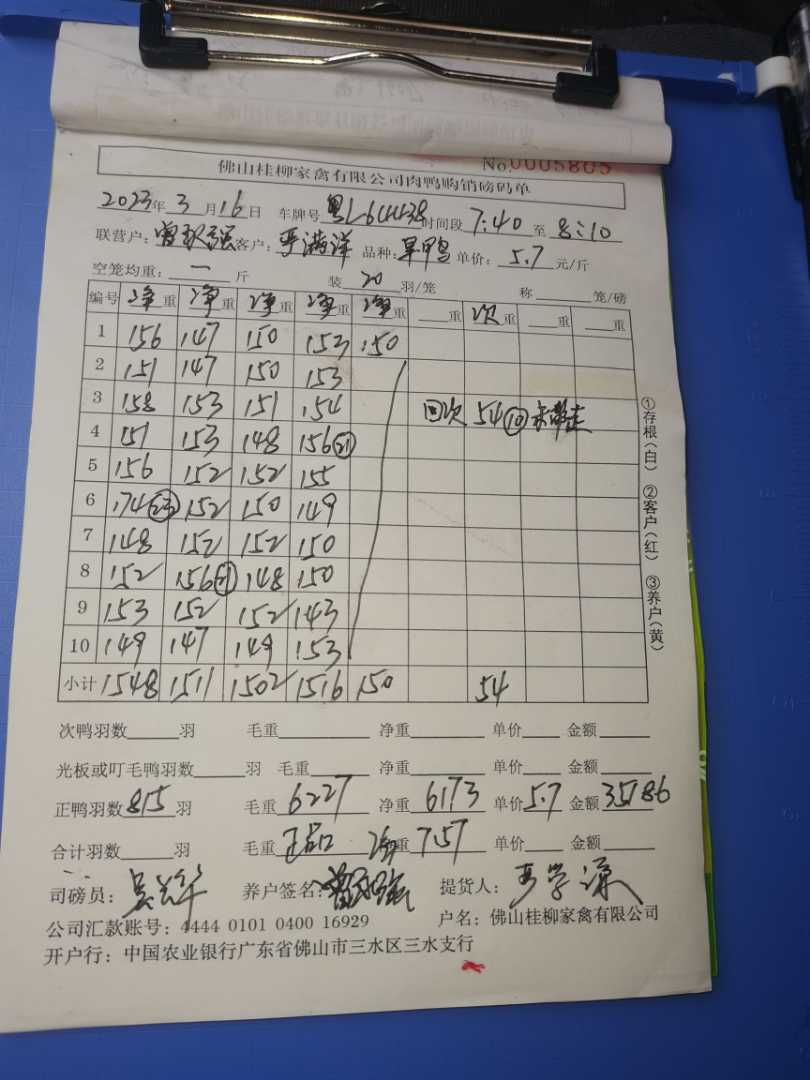 No.0005805
佛山桂柳家禽有限公司肉鸭购销磅码单
2023年 3 月 16 日 车牌号 粤L644438 时间段 7:40 至 8:10
联营户: 强 客户: 严满洋 品种: 旱鸭 单价: 5.7 元/斤
空笼均重: 一 斤 装 20 羽/笼 称 笼/磅
编号 净重 净重 净重 净重 净重 重 次重 重 重
1 156 147 150 153 150
2 151 147 150 153
3 158 153 151 154 回次 54 ⑩ 未带走
4 151 153 148 156㉑
5 156 152 152 155
6 174㉓ 152 150 149
7 148 152 152 150
8 152 156㉑ 148 150
9 153 152 152 143
10 149 147 149 153
小计 1548 1511 1502 1516 150 54
①存根(白) ②客户(红) ③养户(黄)
次鸭羽数 羽 毛重 净重 单价 金额
光板或叮毛鸭羽数 羽 毛重 净重 单价 金额
正鸭羽数 815 羽 毛重 6227 净重 6173 单价 5.7 金额 35186
合计羽数 羽 毛重 正品 净重 7.57 单价 金额
司磅员: 养户签名: 提货人:
公司汇款账号: 4444 0101 0400 16929 户名: 佛山桂柳家禽有限公司
开户行: 中国农业银行广东省佛山市三水区三水支行